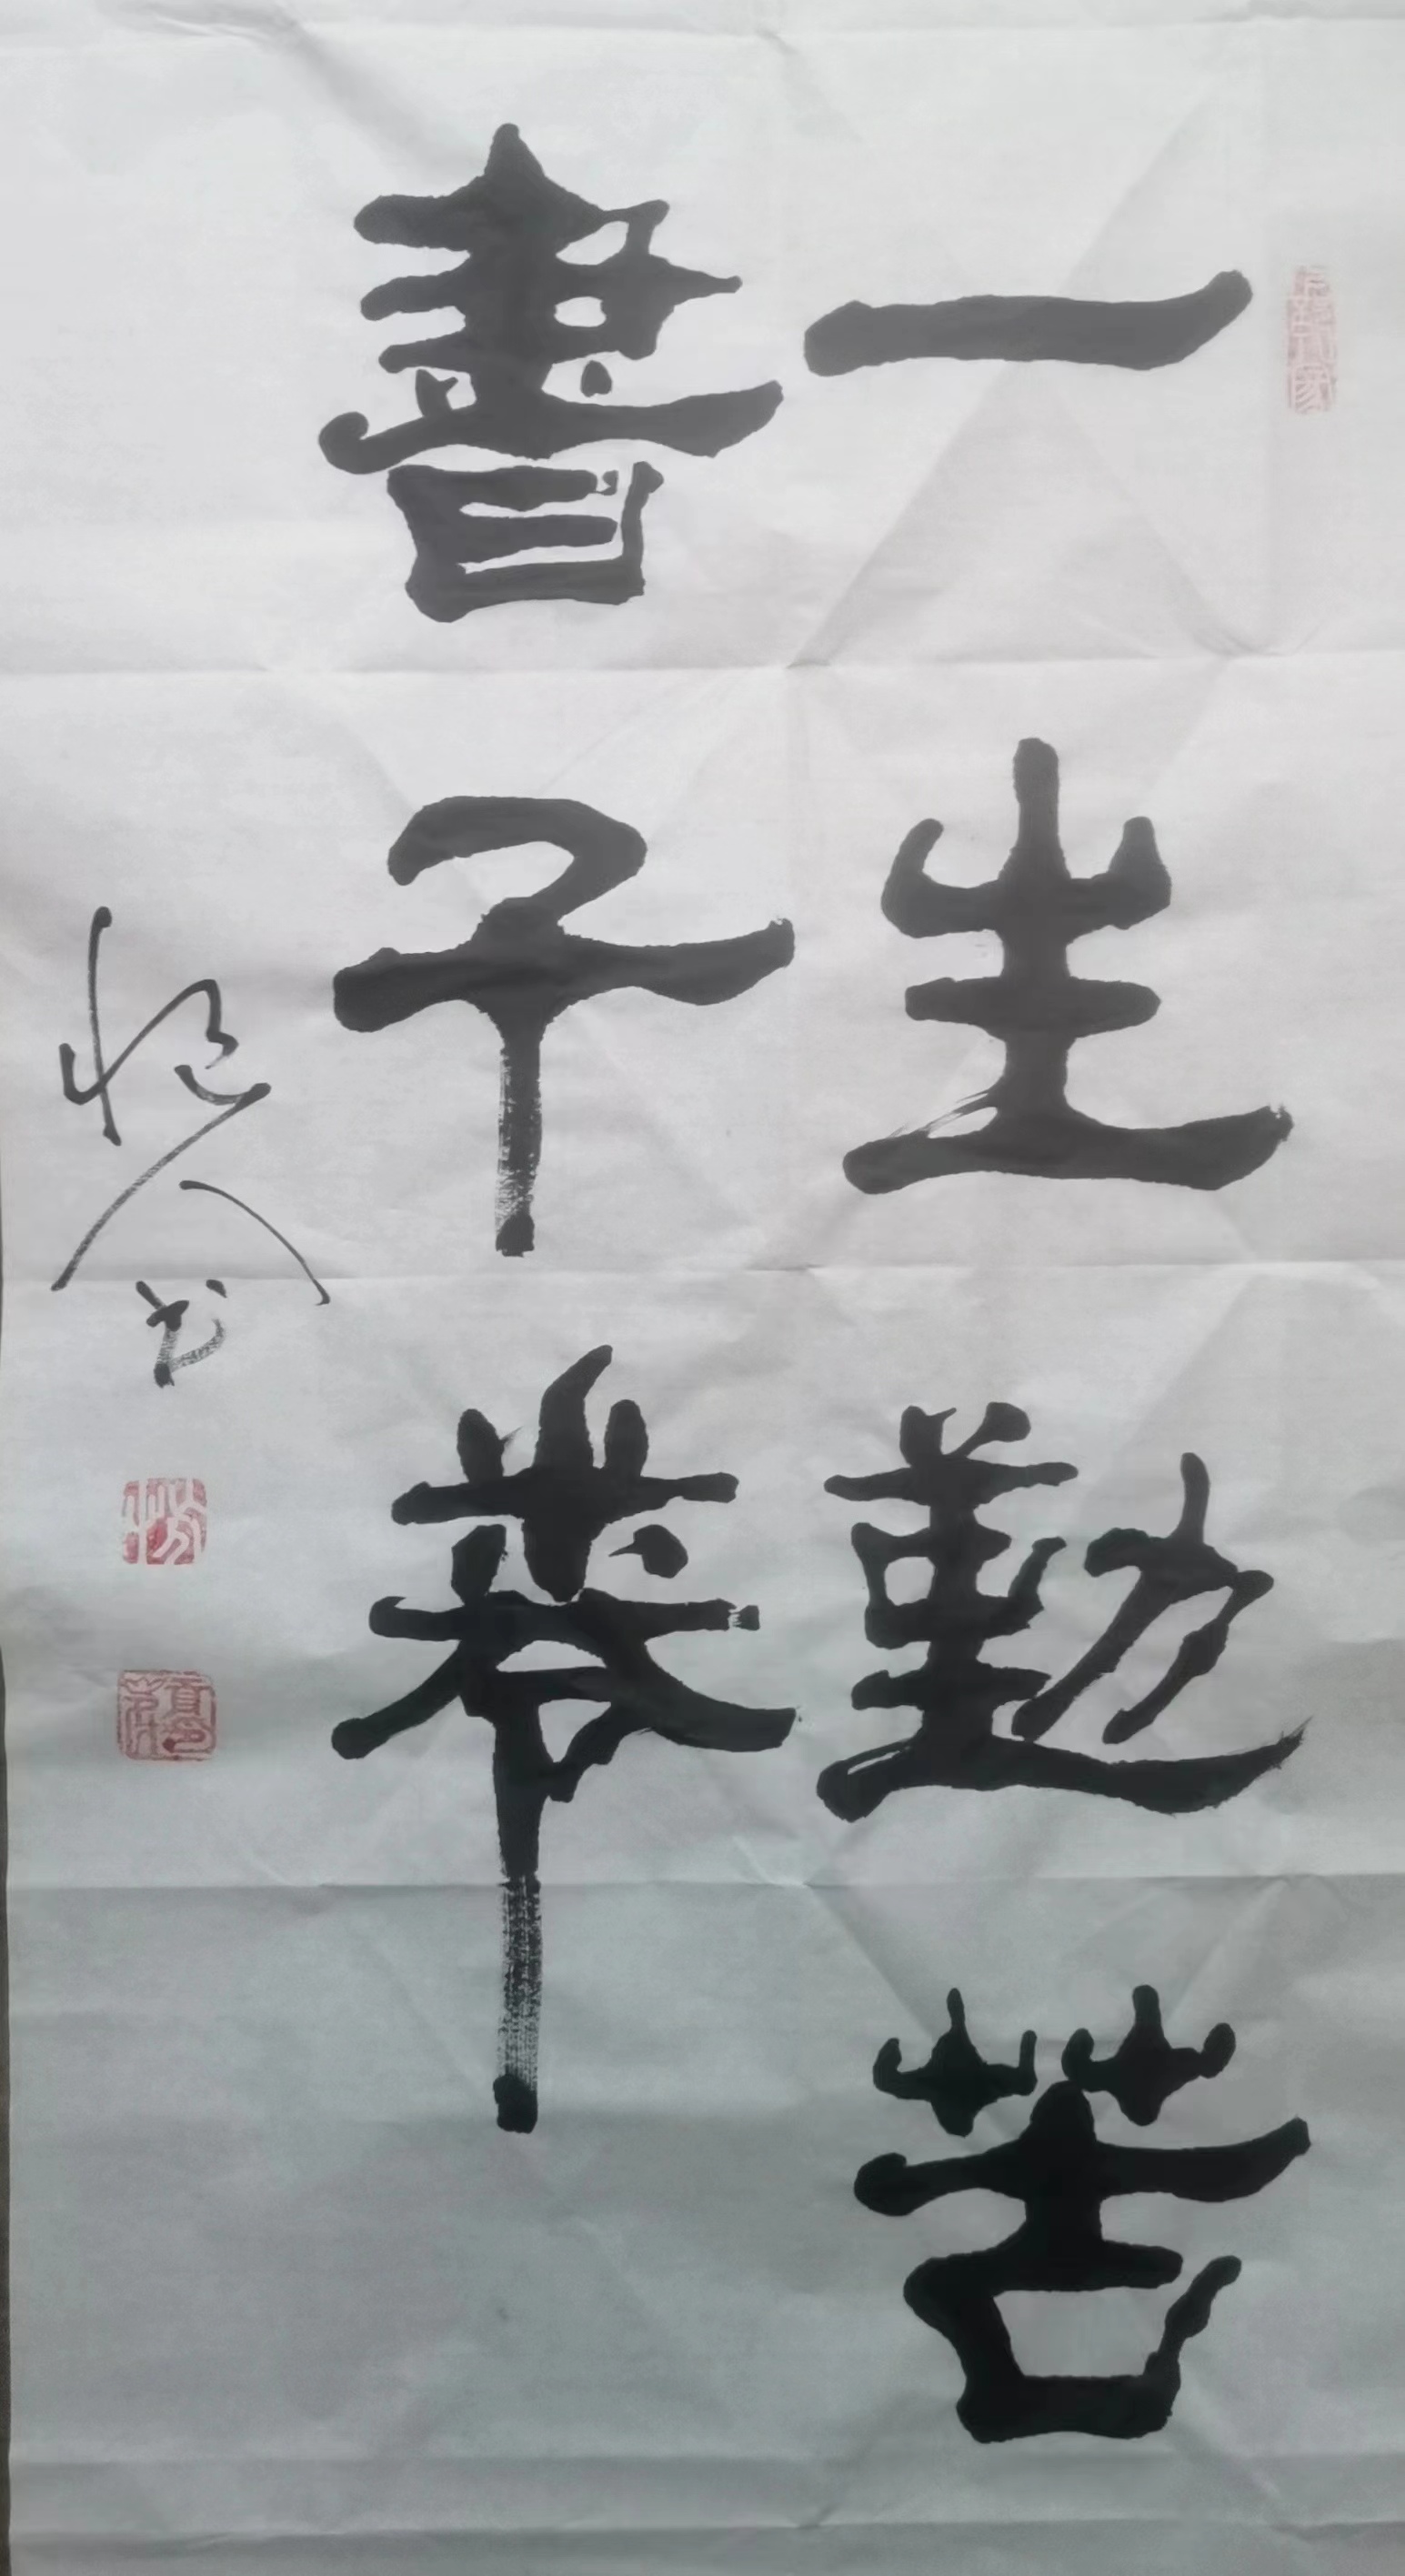 一生勤苦
書千卷
书